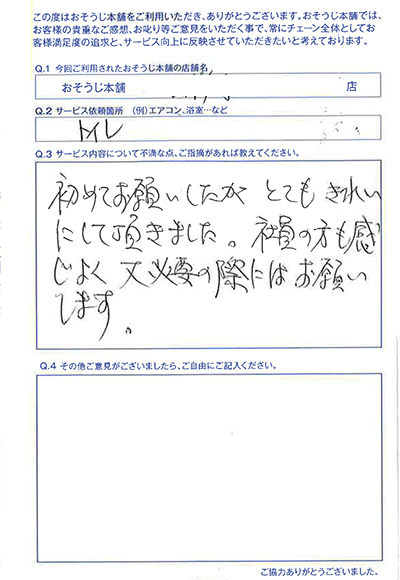 この度はおそうじ本舗をご利用いただき、ありがとうございます。おそうじ本舗では、
お客様の貴重なご感想、お叱り等ご意見をいただく事で、常にチェーン全体としてお
客様満足度の追求と、サービス向上に反映させていただきたいと考えております。
Q.1 今回ご利用されたおそうじ本舗の店舗名
おそうじ本舗 店
Q.2 サービス依頼箇所 (例)エアコン、浴室…など
トイレ
Q.3 サービス内容について不満な点、ご指摘があれば教えてください。
初めてお願いしたが とても きれい
にして頂きました。社員の方も感
じよく 又必要の際にはお願い
します。
Q.4 その他ご意見がございましたら、ご自由にご記入ください。
ご協力ありがとうございました。